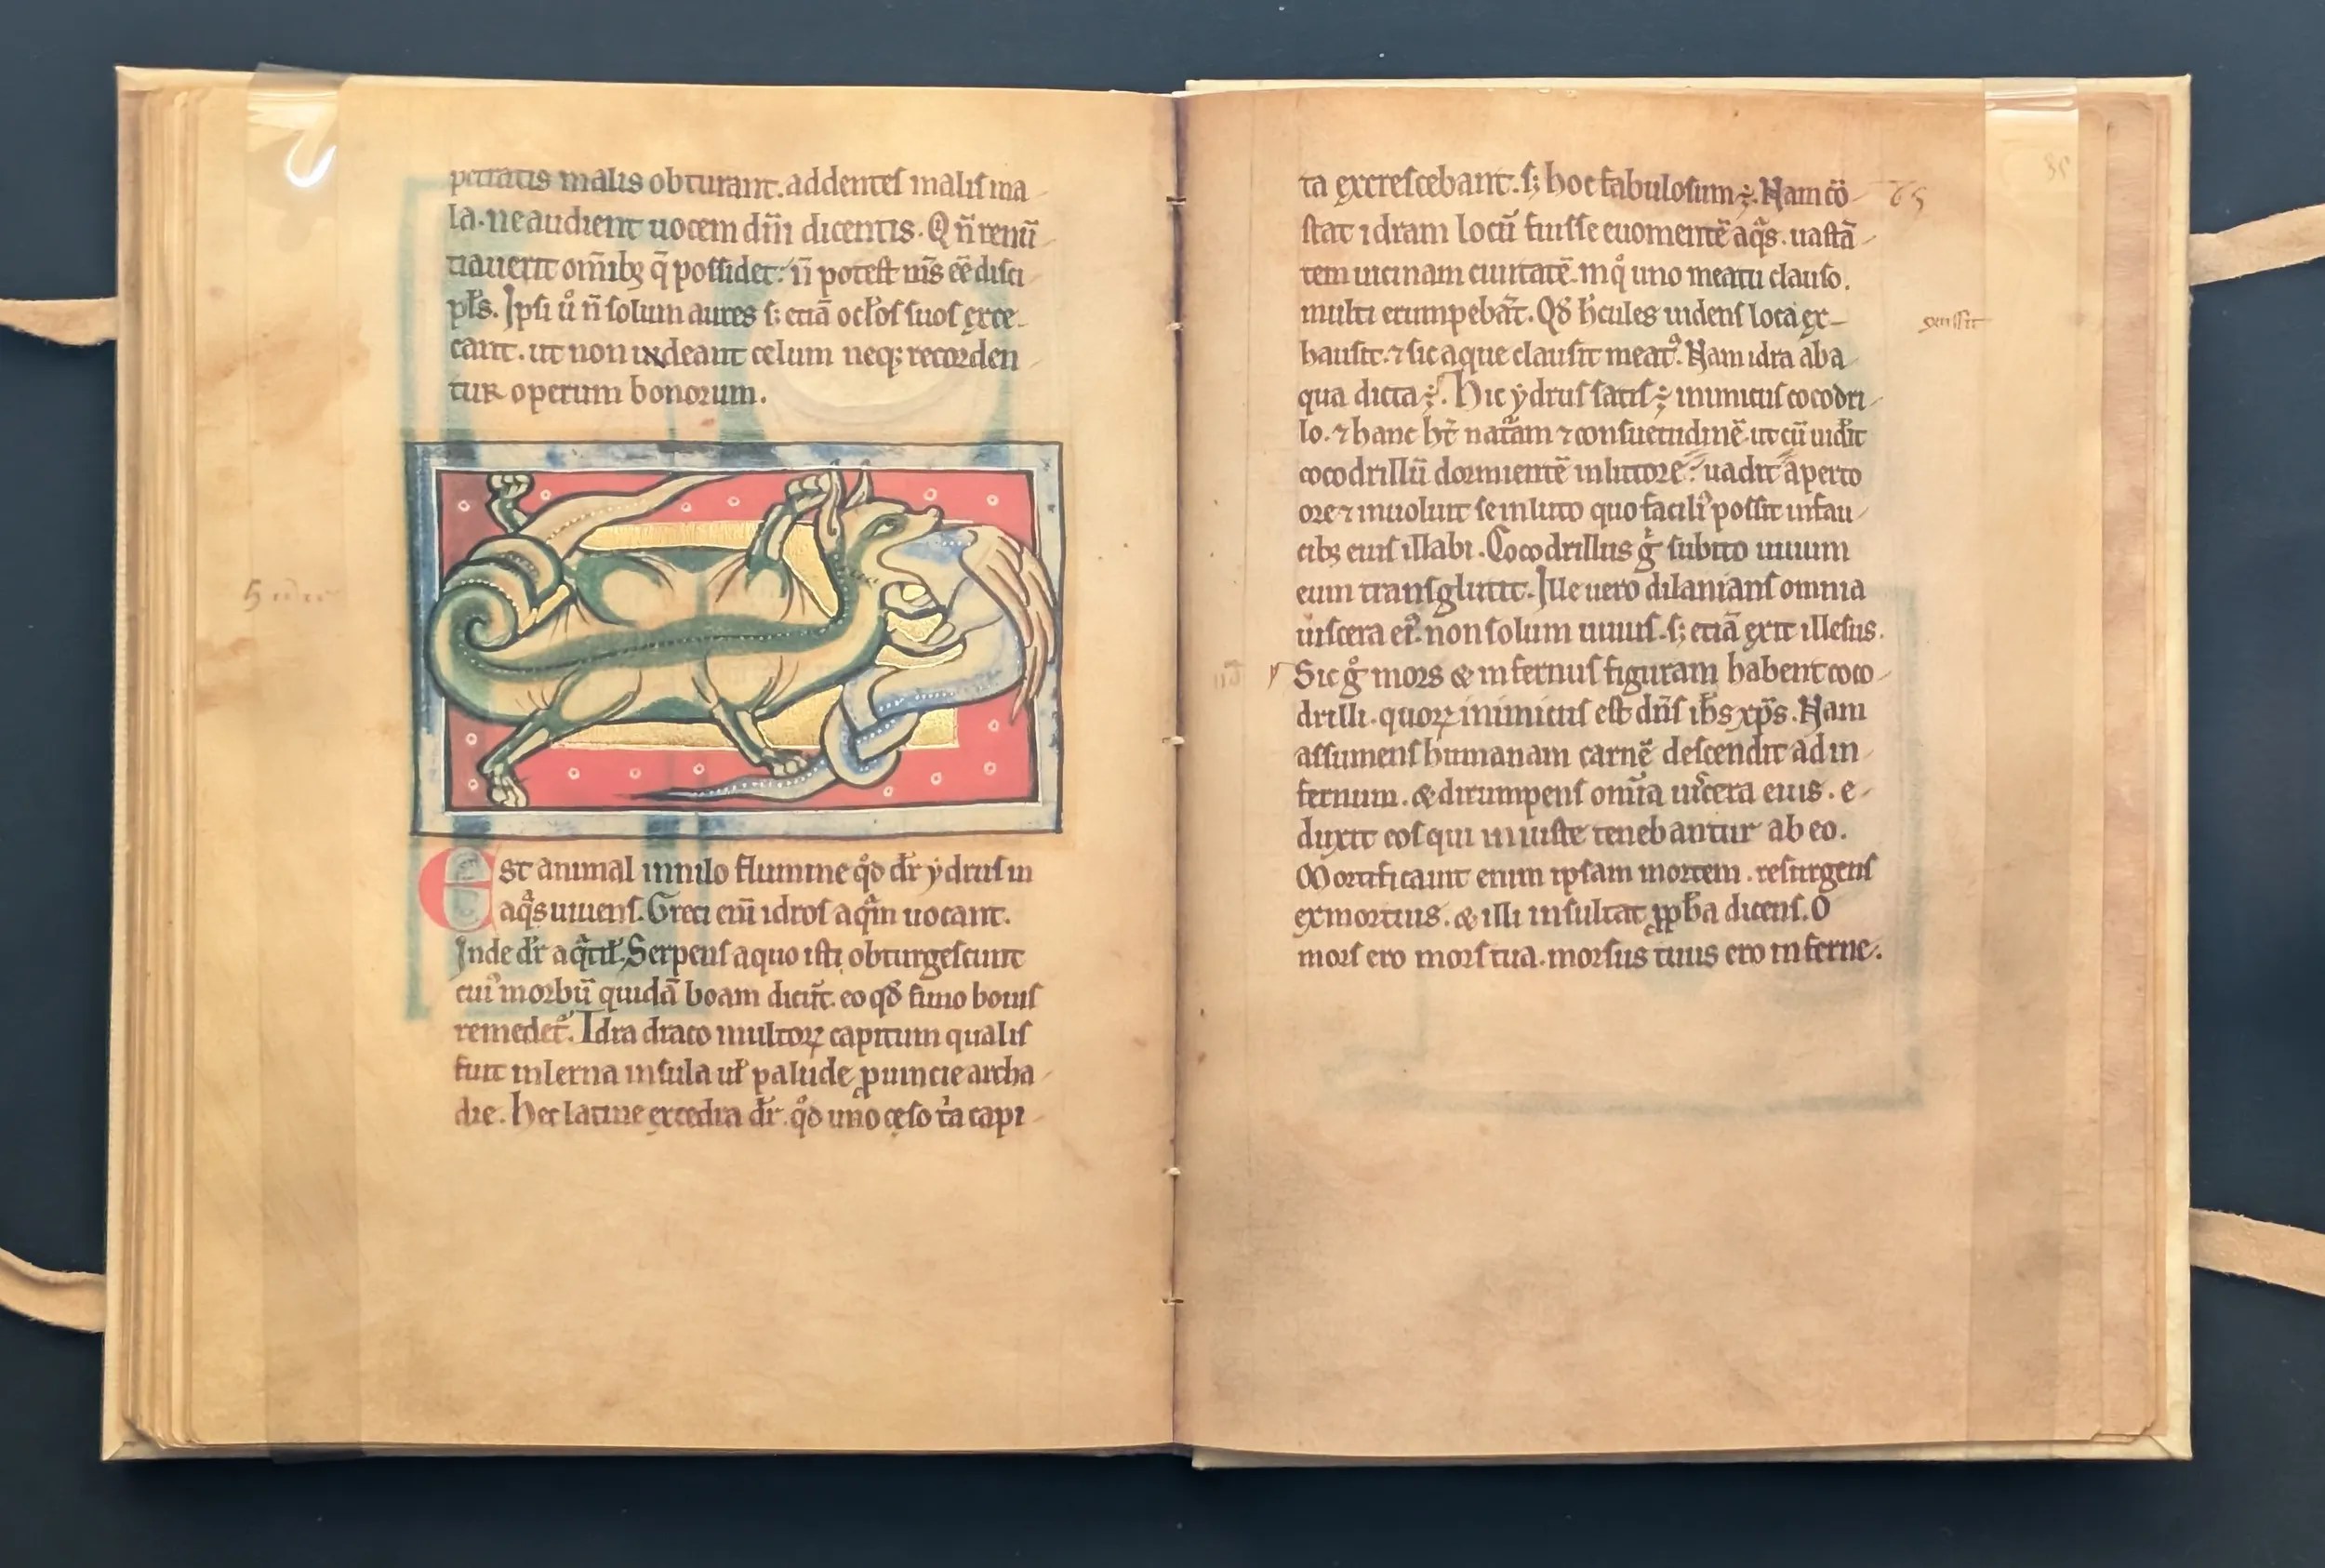 petratis malis obturant. addentes malis ma
la. ne audient uocem dñi dicentis. Q ñ renũ
tiauerit om̃ib; q̃ possidet: ñ potest m̃s ẽe disci
pl̃s. Ipsi ů ñ solum aures s; etiã ocl̃os suos exce
cant. ut non uideant celum neq; recorden
tur operum bonorum.
Est animal in nilo flumine qd̊ dr̃ ydrus in
aq̃s uiuens. Greci eni͂ idros aq̃m uocant.
Inde dr̃ aq̃til̃. Serpens a quo isti obturgescunt
cui᷒ morbũ quidã boam dicũt. eo qd̊ fimo bouis
remedet᷒. Idra draco multoꝝ capitum qualis
fuit in lerna insula ul̃ palude ꝓuincie archa
die. hec latine excedra dr̃. qd̊ uno ceso t̾a capi
ta excrescebant. s; hoc fabulosum ÷. Nam cõ 65
stat idram locũ fuisse euomentẽ aq̃s. uastã
tem uicinam ciuitatẽ. in q̊ uno meatu clauso.
multi erumpebãt. Qd̊ h̾cules uidens loca ex
hausit. ⁊ sic aque clausit meat᷒. Nam idra ab a
qua dicta ÷. Hic ydrus satis ÷ inimicus cocodri
lo. ⁊ hanc ht̃ nat᷑am ⁊ consuetudinẽ. ut cũ uid̾it
cocodrillũ dormientẽ in littore: uadit aperto
ore ⁊ inuoluit se in luto quo facili᷒ possit in fau
cib; eius illabi. Cocodrillus g̊ subito uiuum
eum transglutit. Ille uero dilanians omnia
uiscera ei᷒. non solum uiuus. s; etiã exit illesus.
Sic g̊ mors & infernus figuram habent coco
drilli. quoꝝ inimicus est dñs ih̃s xp̃s. Nam
assumens humanam carnẽ descendit ad in
fernum. & dirumpens om̃ia uisc̾a eius. e
duxit eos qui iniuste tenebantur ab eo.
Mortificauit enim ipsam mortem. resurgens
ex mortuis. & illi insultat ꝓph̃a dicens. O
mors ero mors tua. morsus tuus ero inferne.